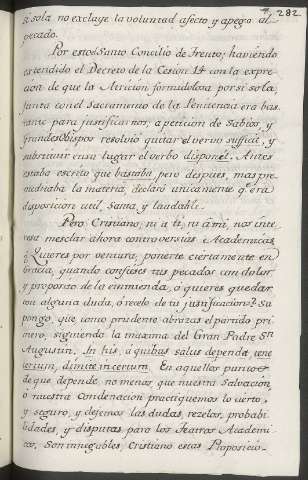 282
si sola no excluye la voluntad afecto y apego al
pecado.
Por esto el Santo Concilio de Trento, haviendo
extendido el Decreto de la Cesion 14 con la expre
cion de que la Atricion, formidolosa por si sola,
junta con el Sacramento de la Penitencia era bas
tante para justificarnos, a peticion de Sabios, y
grandes Obispos resolvió quitar el verbo suficit, y
substituir en su lugar el verbo disponit. Antes
estaba escrito que bastaba, pero despues, mas pre
meditada la materia, declaró unicamente q.e era
disposicion util, Santa, y laudable.
Pero Cristiano, ni a ti, ni á mi, nos inte
resa mesclar ahora controversias Academicas.
¿Quieres por ventura, ponerte ciertamente en
Gracia, quando confieses tus pecados con dolor
y proposito de la enmienda, ó quieres quedar
con alguna duda, ó recelo de tu justificacion? Su
pongo, que como prudente abrazas el partido pri
mero, siguiendo la maxima del Gran Padre Sn
Augustin. In his, a quibus salus dependet, tene
certum, dimite incertum. En aquellos puntos
de que depende, no menos, que nuestra Salvacion,
o nuestra Condenacion practiquemos lo cierto,
y seguro, y dejemos las dudas, rezelos, probabi
lidades, y disputas, para los Teatros Academi
cos. Son innegables, Cristiano estas Proposicio-